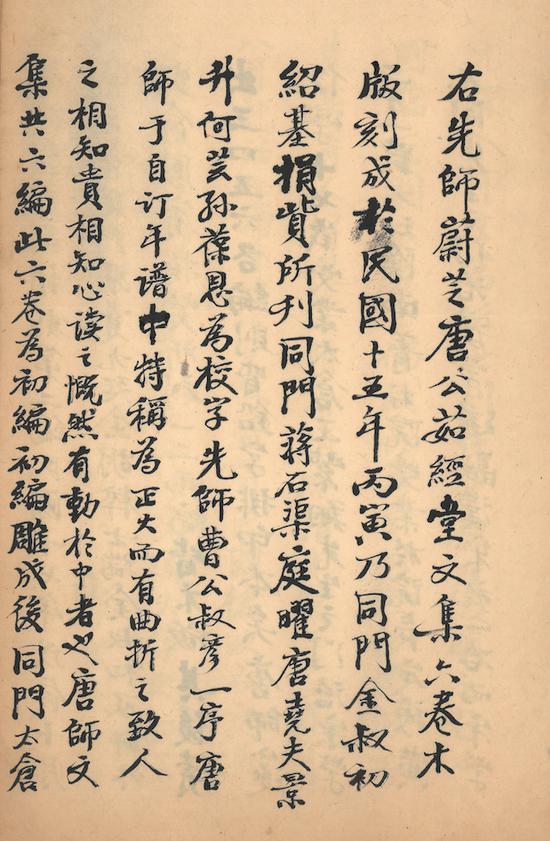 右先師蔚芝唐公茹經堂文集六卷木
版刻成於民國十五年丙寅乃同門金叔初
紹基捐貲所刊同門蔣石渠庭曜唐堯夫景
升何芸孫葆恩為校字先師曹公叔彥一序唐
師于自订年谱中特稱為正大而有曲折之致人
之相知貴相知心读之慨然有動於中者也唐師文
集共六編此六卷為初編初編雕成後同門太倉